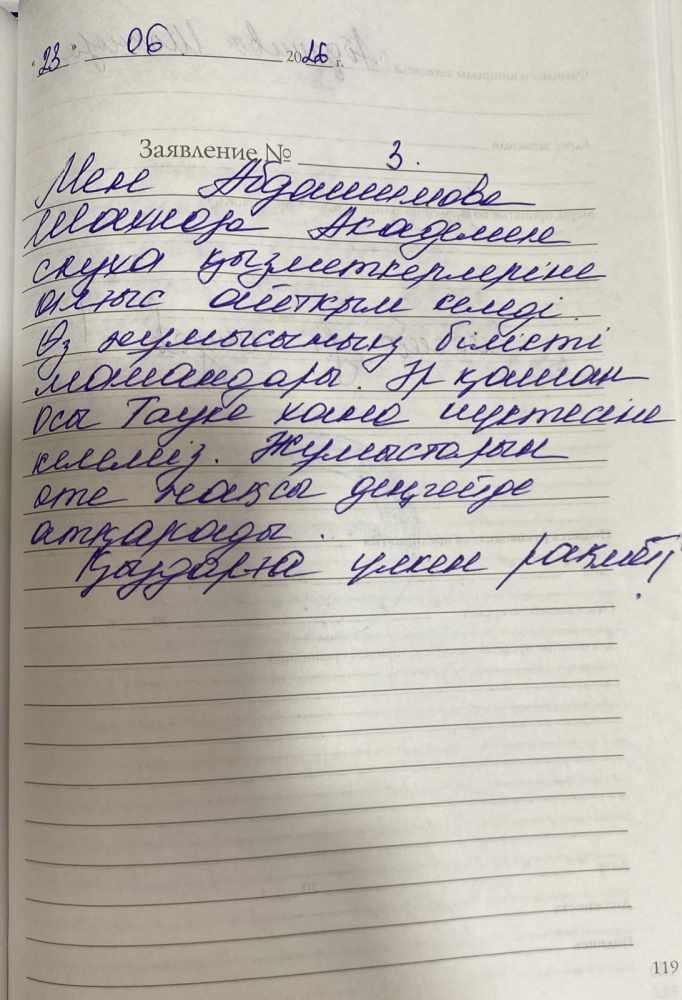 "23" 06 2026 г.
Заявление № 3.
Мен Абдашимова
Шахноза Академия
слуха қызметкерлеріне
алғыс айтқым келеді.
Өз жұмысының білікті
мамандары. Әр қашан
осы Тауке хана нүктесіне
келеміз. Жұмыстарын
өте жақсы деңгейде
атқарады.
Қыздарға үлкен рахмет
119